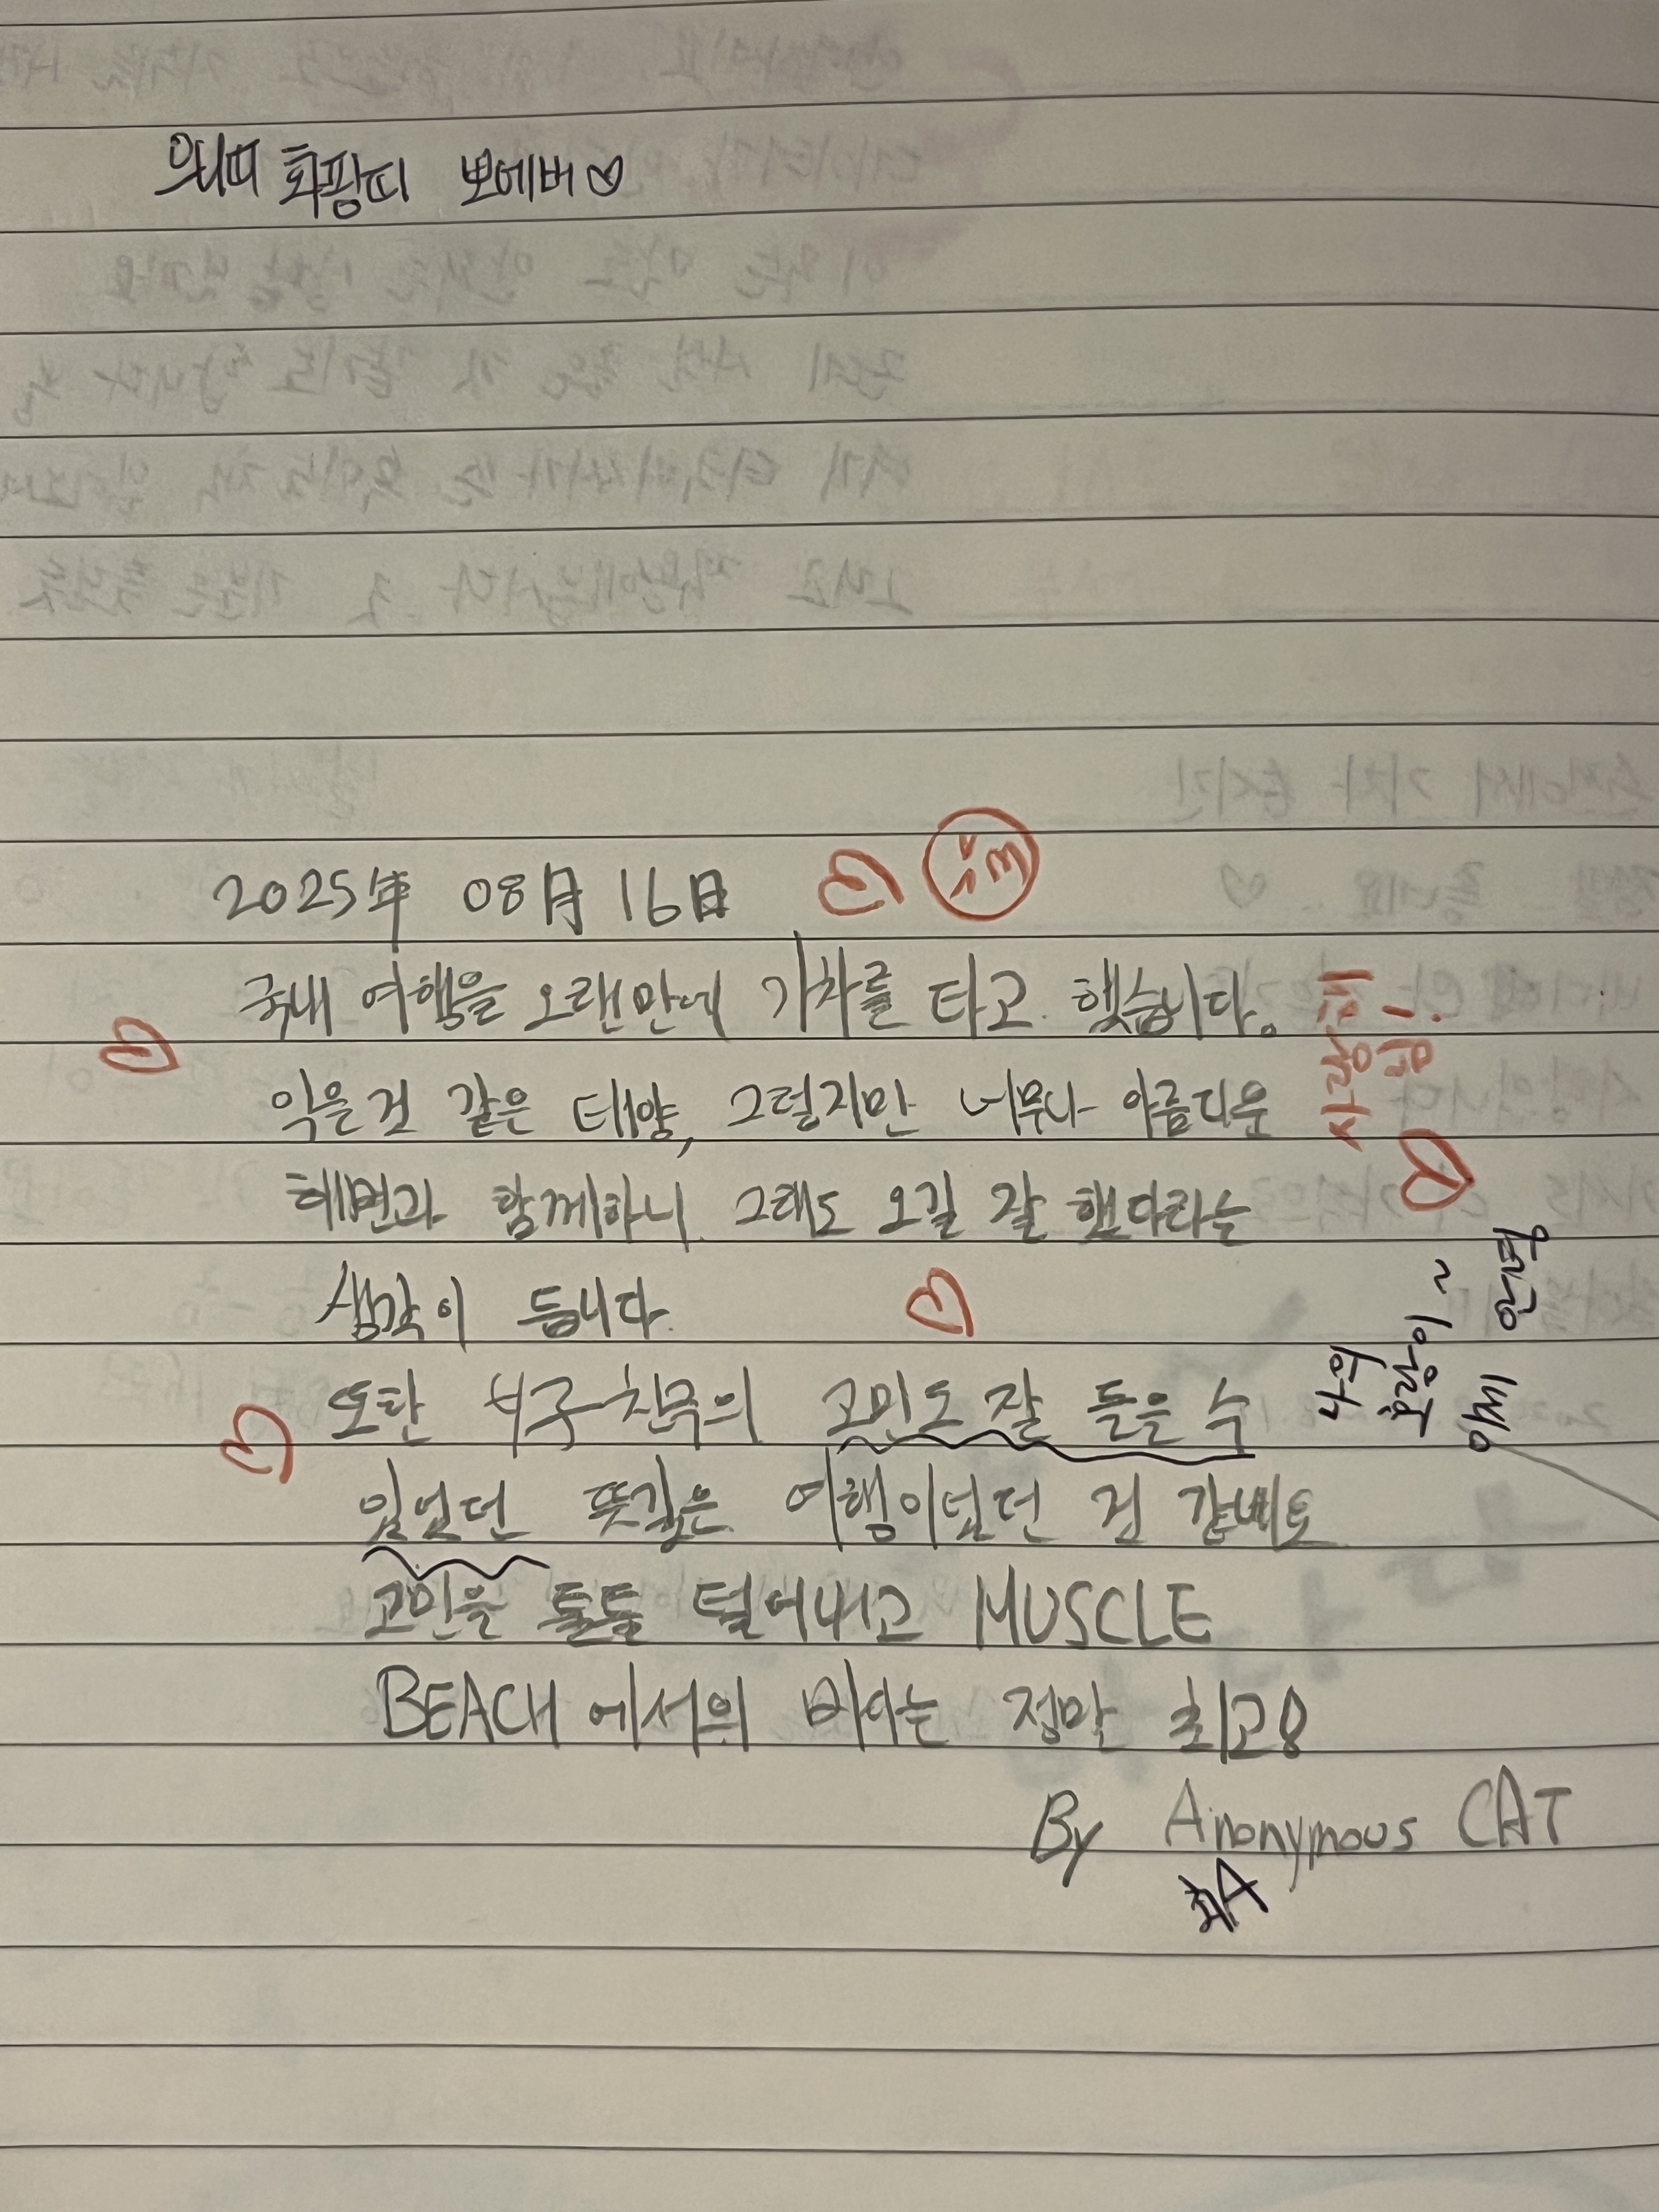 화팡띠 뽀에버♡
2025年 08月 16日
국내 여행을 오랜만에 기차를 타고 했습니다.
익을것 같은 태양, 그렇지만 너무나 아름다운
해변과 함께하니 그래도 오길 잘 했다라는
생각이 듭니다.
또한 부구친국의 고민도 잘 들은 수
있었던 뜻깊은 여행이였던 것 같네요
고민을 툴툴 털어내고 MUSCLE
BEACH에서의 바다는 정말 최고!
By Anonymous CAT
사랑해
님!
나의
호랑이~
이제 안녕